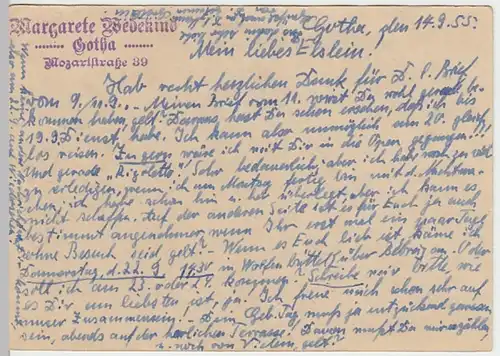 Margarete Wedekind
Gotha
Mozartstraße 39
Gotha, den 14.9.55.
Mein liebes Elslein!
Hab recht herzlichen Dank für D. l. Brief
vom 9./11.9.. Meinen Brief vom 11. wirst Du wohl gerade be-
kommen haben, gelt? Daraus hast Du schon ersehen, daß ich bis
19.9. Dienst habe. Ich kann also unmöglich am 20. gleich
los reisen. Zu gern wäre ich mit Dir in die Oper gegangen!!!
Und gerade "Rigoletto"! Sehr bedauerlich, aber ich habe noch so viel
zu erledigen, wenn ich am Montag fertig bin mit d. Nachtwa-
chen, ich habe schon hin u. her überlegt, aber ich kann es
nicht schaffen. Auf der anderen Seite ist es für Euch ja auch
bestimmt angenehmer, wenn Ihr erst mal ein paar Tage
ohne Besuch seid gelt? Wenn es Euch lieb ist, käme ich
Donnerstag, d. 22.9. 19.31 in Wolfenbüttel über Bebra an. Oder
soll ich am 23. oder 24. kommen? Schreibe mir bitte, wie
es Dir am liebsten ist, ja. Ich freue mich schon sehr auf
unser Zusammensein. Dein Geb. Tag muß ja entzückend gewesen
sein, abends auf der herrlichen Terrasse! Davon mußt Du mir erzählen,
u. noch von Vielem, gelt?